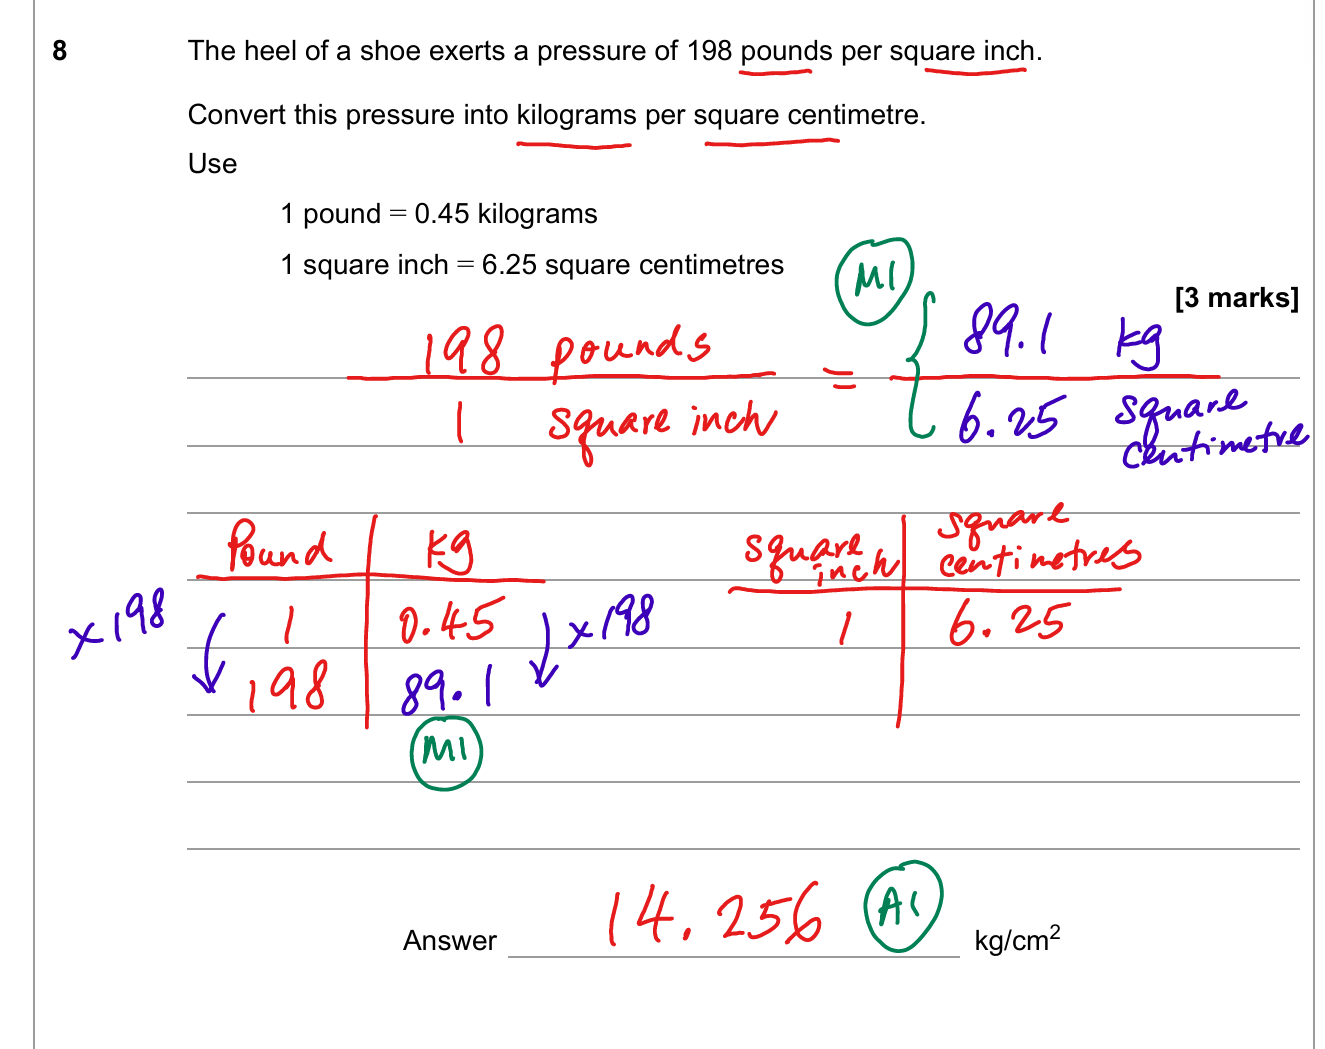 8 The heel of a shoe exerts a pressure of 198 pounds per square inch.
Convert this pressure into kilograms per square centimetre.
Use
1 pound = 0.45 kilograms
1 square inch = 6.25 square centimetres
[3 marks]
M1
198 pounds
1 square inch
=
89.1 kg
6.25 square
centimetre
Pound kg
1 0.45
198 89.1
×198
×198
M1
square
inch
square
centimetres
1 6.25
Answer 14.256 A1 kg/cm²